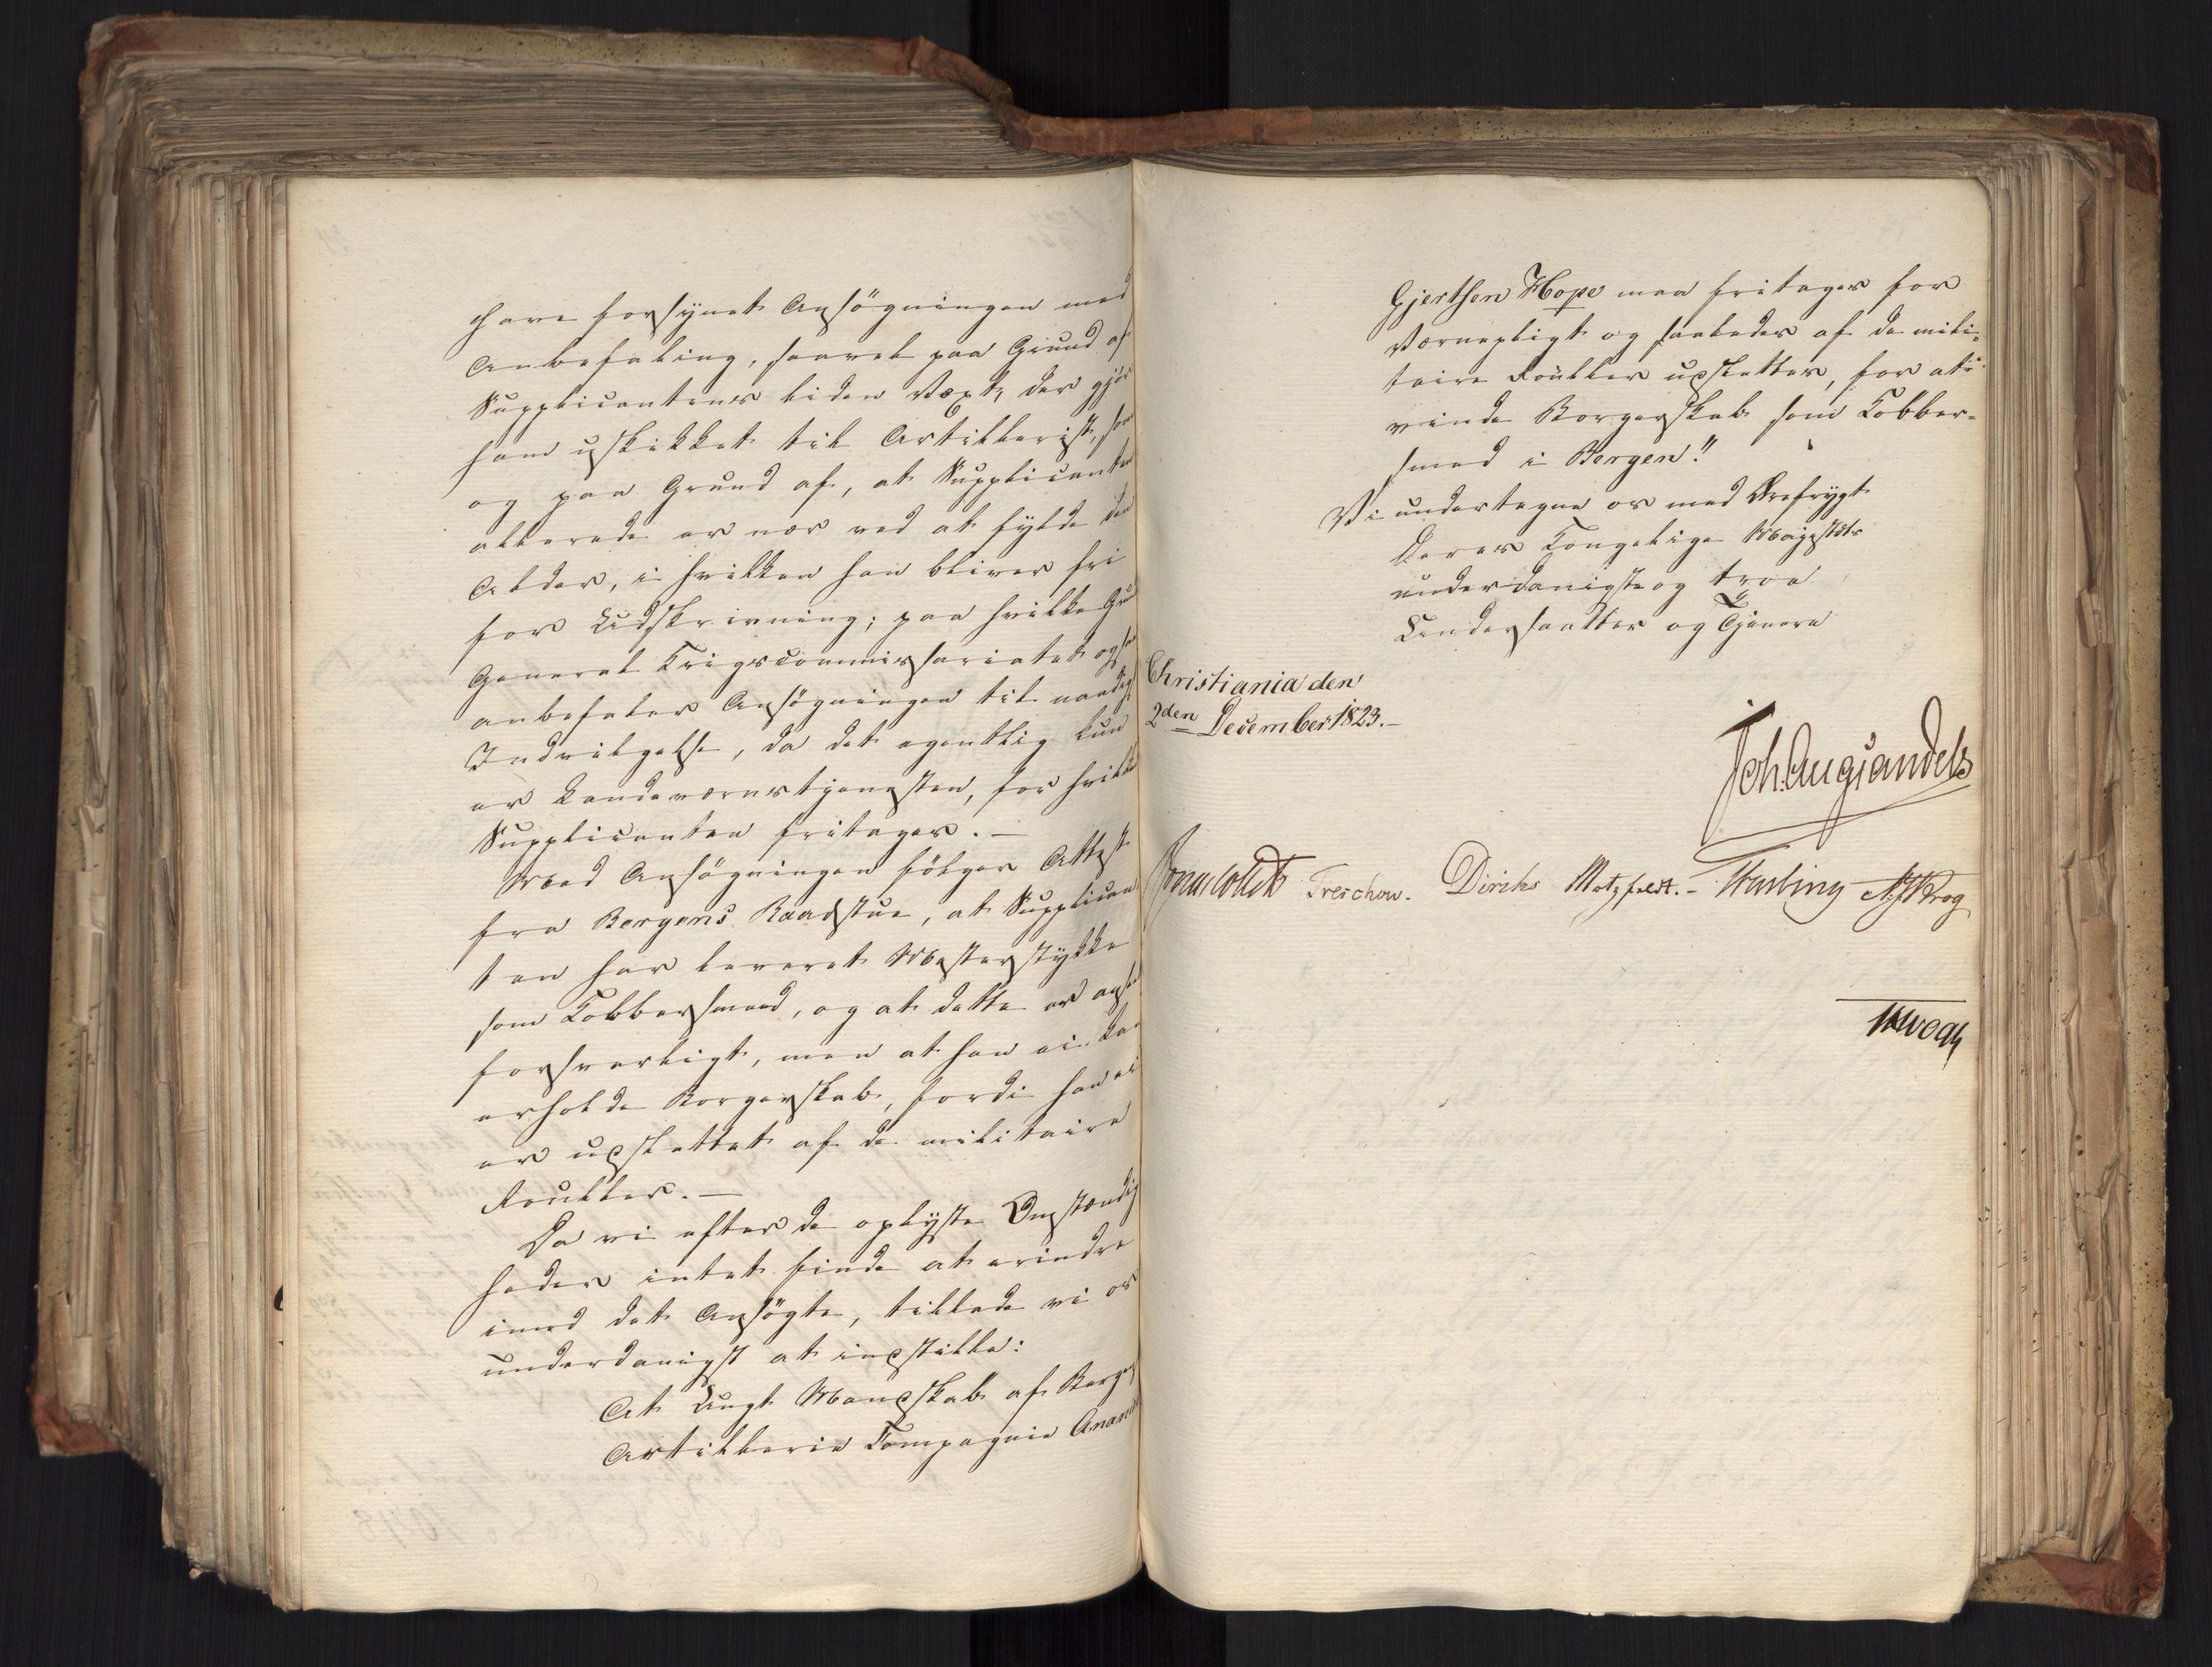 have forsynet Ansögningen med
Anbefaling, saavel paa Grund af
Supplicantens liden Væxt, der gjör
ham uskikket til Artillerist, som
og paa Grund af, at Supplicanten
allerede er nær ved at fylde den
Alder, i hvilken han bliver fri
for Udskrivning; paa hvilke Gru
General Krigscommissariatet ogsaa
anbefaler Ansögningen til naadigst
Indvilgelse, da det egentlig kun
er Landeværnstjenesten, for hvilken
Supplicanten fritages. —
Med Ansögningen fölger Attest
fra Bergens Raadstue, at Supplican
ten har leveret Mesterstykke
som Kobbersmed, og at dette er anseet
forsvarligt, men at han ei kan
erholde Borgerskab, fordi han ei
er udslettet af de militaire
Rouller. —
Da vi efter de oplyste Omstændig
heder intet finde at erindre
imod det Ansögte, tillade vi os
underdanigst at indstille:
At Ungt Mandskab af Bergens
Artillerie Compagnie Anani
Gjertsen Hope maa fritages for
Værnepligt og saaledes af de mili-
taire Rouller udslettes, for at
vinde Borgerskab som Kobber-
smed i Bergen!"
Vi undertegne os med Ærefrygt
Deres Kongelige Majestæts
underdanigste og troe
Undersaatter og Tjenere
Christiania den
2den December 1823. —
Joh. Aug. Sandels
Jonas Collett Treschow. Dirichs Motzfeldt. — Fasting N.J. Krog